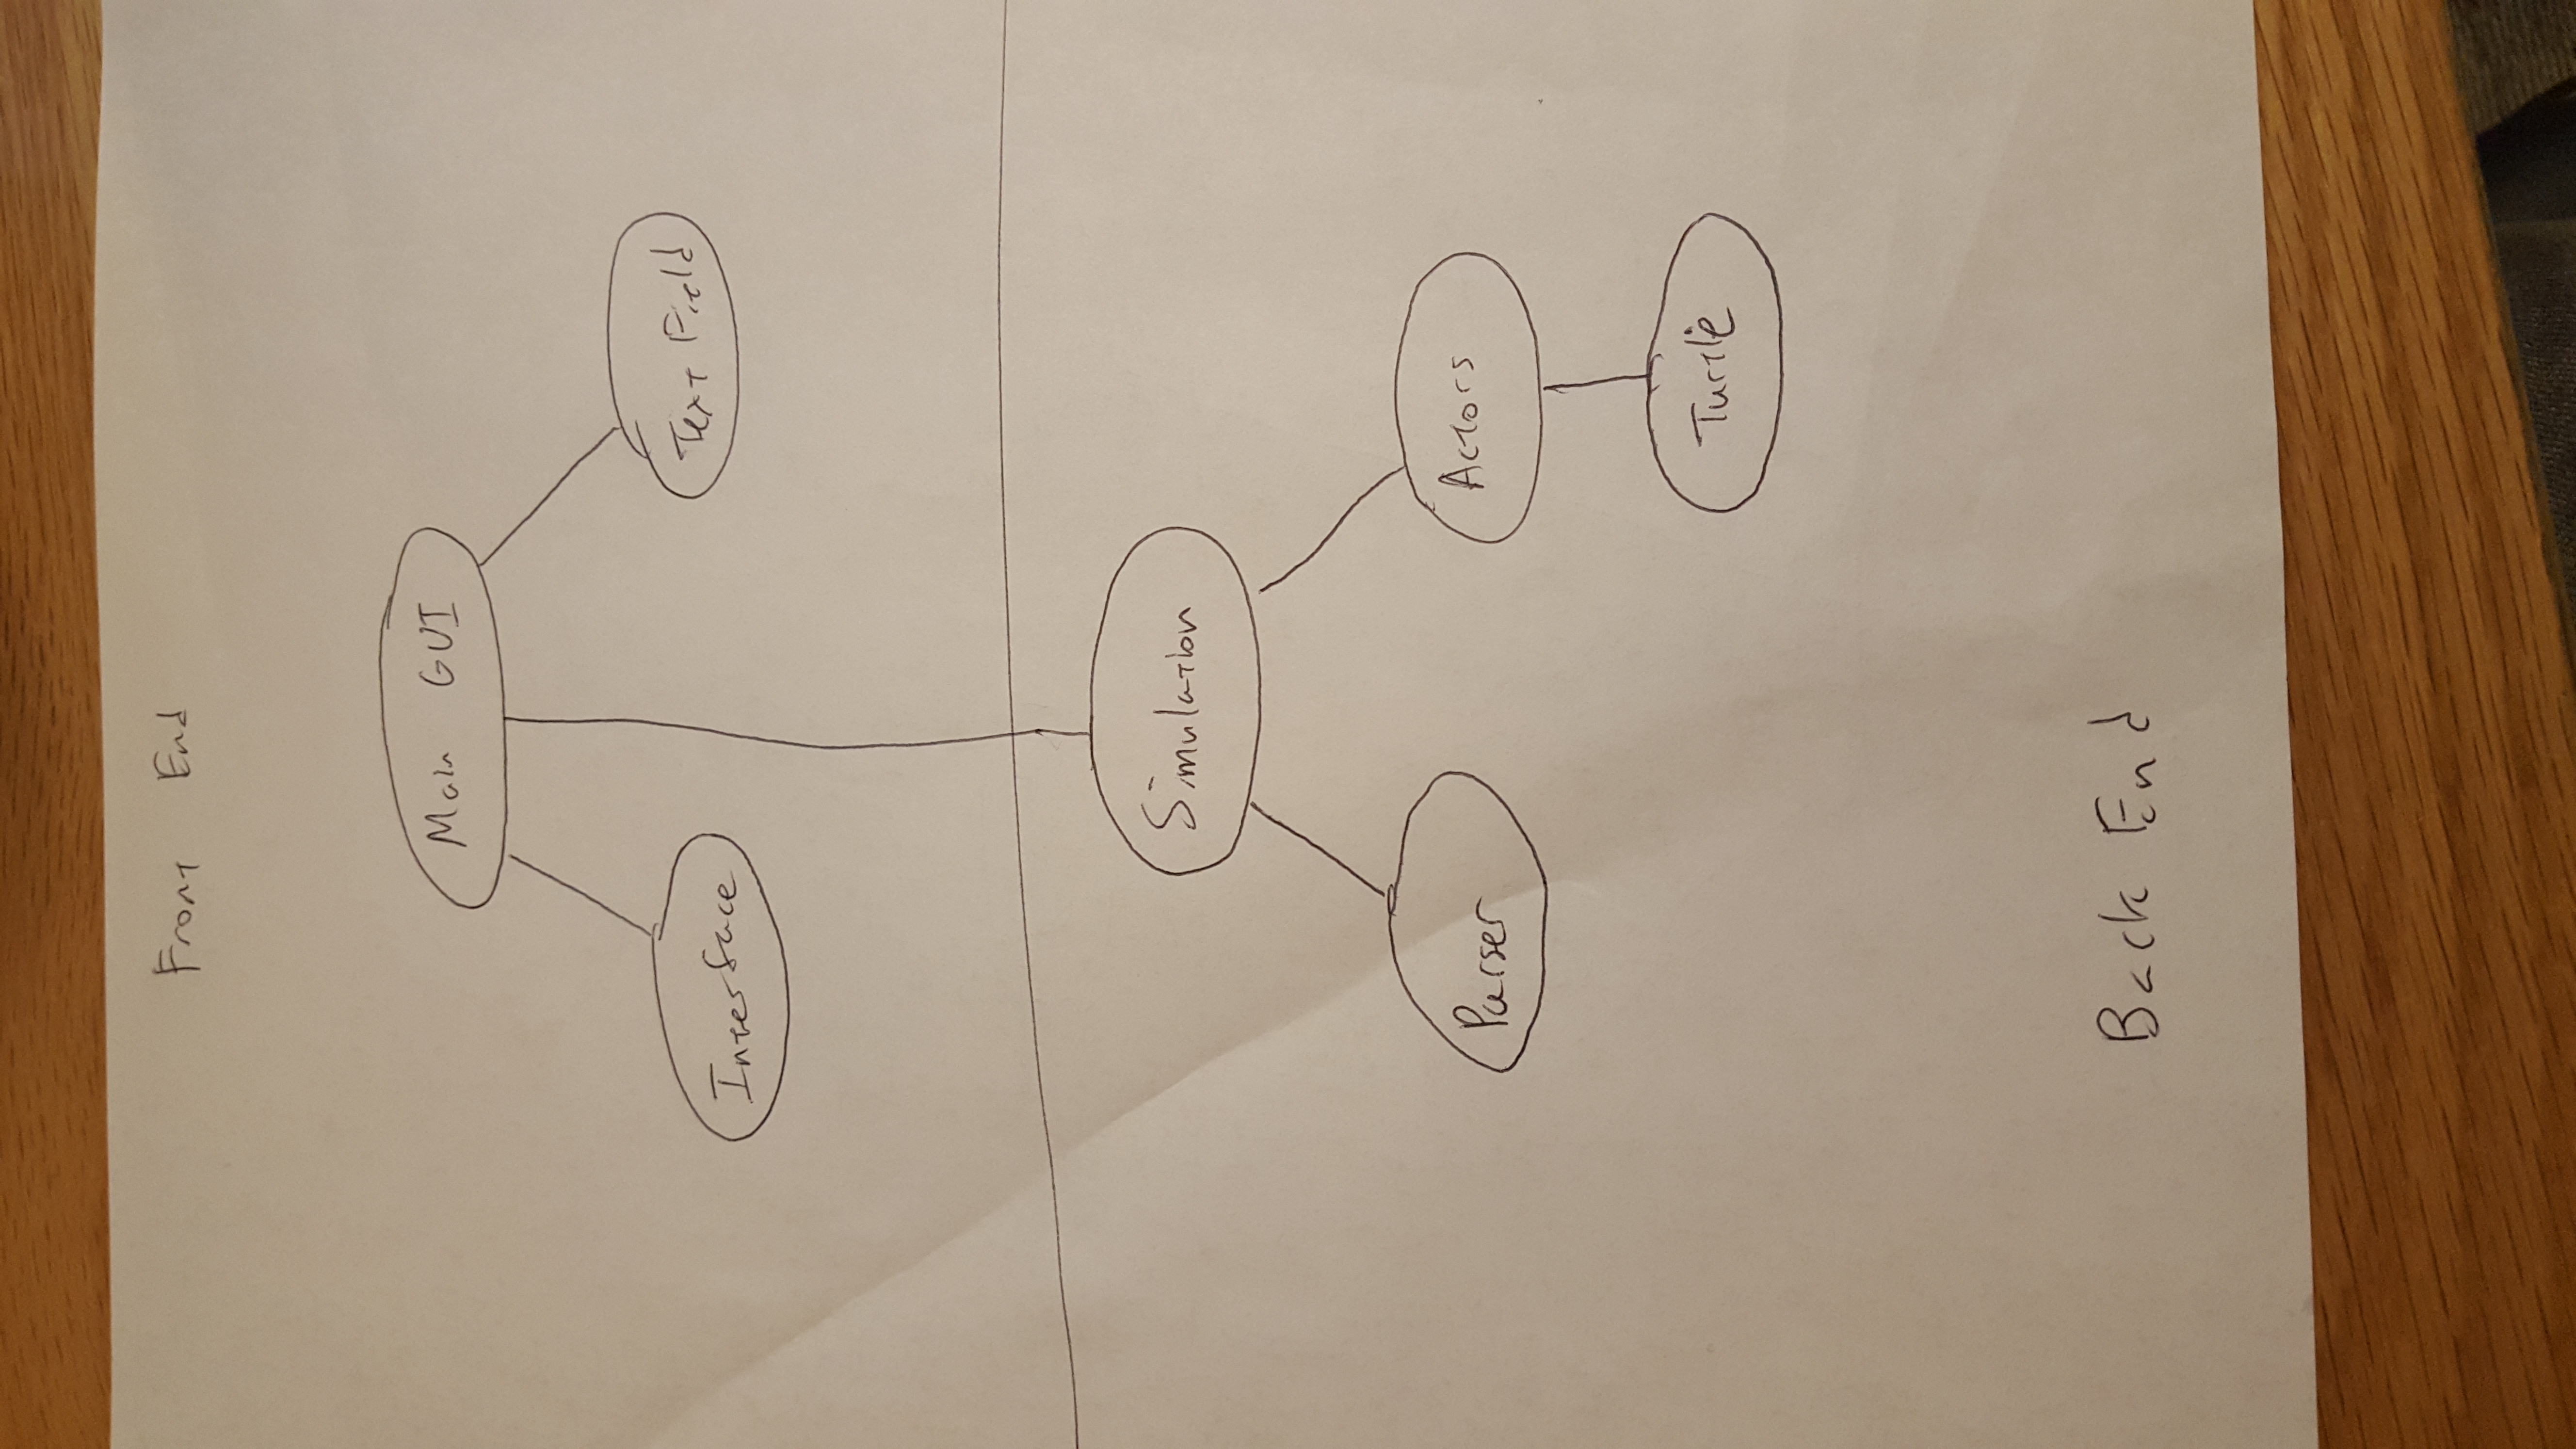 Front End
Main GUI
Interface
Text Field
Simulation
Parser
Actors
Turtle
Back End